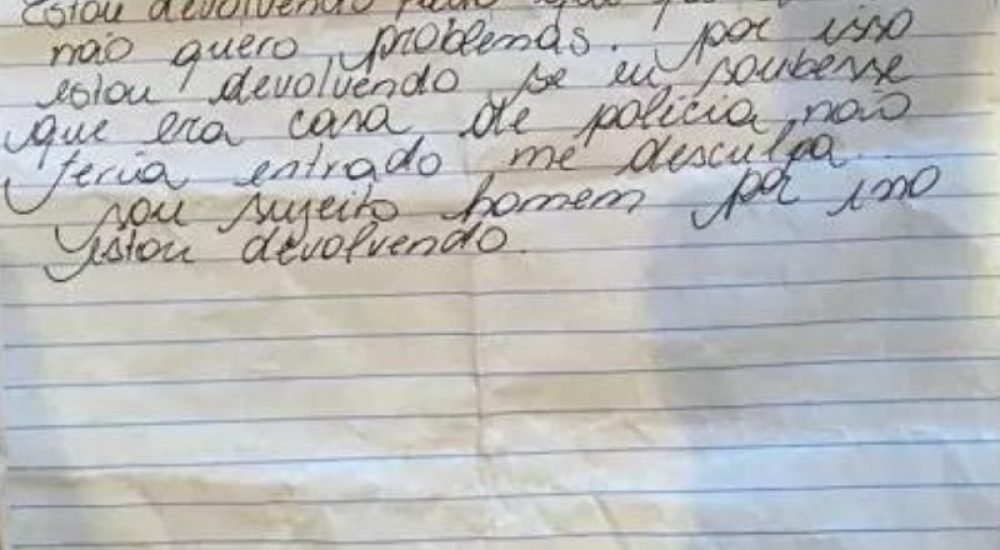 estou devolvendo
não quero problemas. por isso
estou devolvendo se eu soubesse
que era casa de policia não
teria entrado me desculpa..
sou sujeito homem por isso
estou devolvendo.